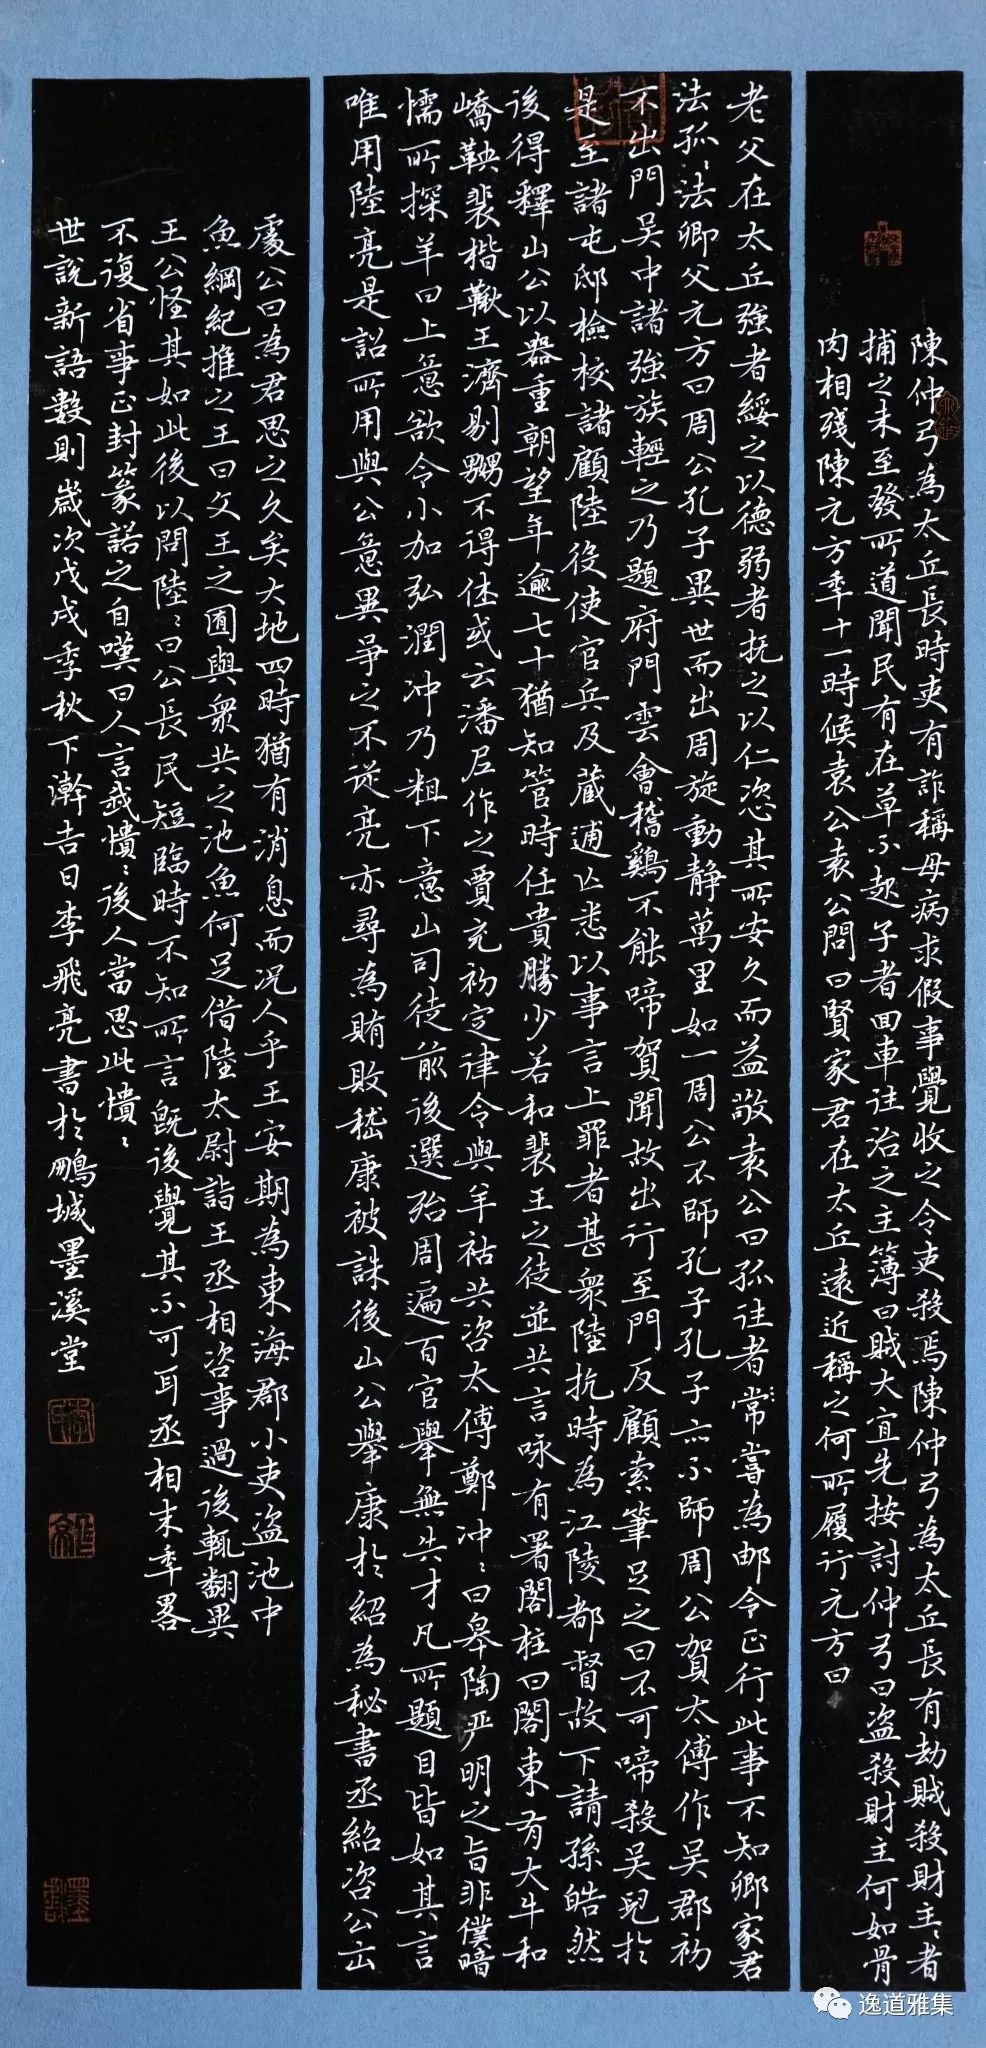 陳仲弓為太丘長時吏有詐稱母病求假事覺收之令吏殺焉陳仲弓為太丘長有劫賊殺財主主者
捕之未至發所道聞民有在草不起子者回車往治之主簿曰賊大宜先按討仲弓曰盜殺財主何如骨
肉相殘陳元方年十一時候袁公袁公問曰賢家君在太丘遠近稱之何所履行元方曰
老父在太丘強者綏之以德弱者撫之以仁恣其所安久而益敬袁公曰孤往者常嘗為鄴令正行此事不知卿家君
法孤孤法卿父元方曰周公孔子異世而出周旋動靜萬里如一周公不師孔子孔子亦不師周公賀太傅作吳郡初
不出門吳中諸強族輕之乃題府門雲會稽鷄不能啼賀聞故出行至門反顧索筆足之曰不可啼殺吳兒於
是至諸屯邸檢校諸顧陸役使官兵及藏逋亡悉以事言上罪者甚衆陸抗時為江陵都督故下請孫皓然
後得釋山公以器重朝望年逾七十猶知管時任貴勝少若和裴王之徒並共言咏有署閣柱曰閣東有大牛和
嶠鞅裴楷鞦王濟剔嬲不得休或云潘尼作之賈充初定律令與羊祜共咨太傅鄭冲冲曰皋陶严明之旨非僕暗
懦所探羊曰上意欲令小加弘潤冲乃粗下意山司徒前後選殆周遍百官舉無失才凡所題目皆如其言
唯用陸亮是詔所用與公意異爭之不從亮亦尋為賄敗嵇康被誅後山公舉康於紹為秘書丞紹咨公出
處公曰為君思之久矣大地四時猶有消息而况人乎王安期為東海郡小吏盜池中
魚綱紀推之王曰文王之囿與衆共之池魚何足借陸太尉詣王丞相咨事過後輒翻異
王公怪其如此後以問陸陸曰公長民短臨時不知所言既後覺其不可耳丞相末年畧
不復省事正封篆諾之自嘆曰人言我憒憒後人當思此憒憒
世說新語數則歲次戊戌季秋下澣吉日李飛亮書於鵬城墨溪堂
逸道雅集